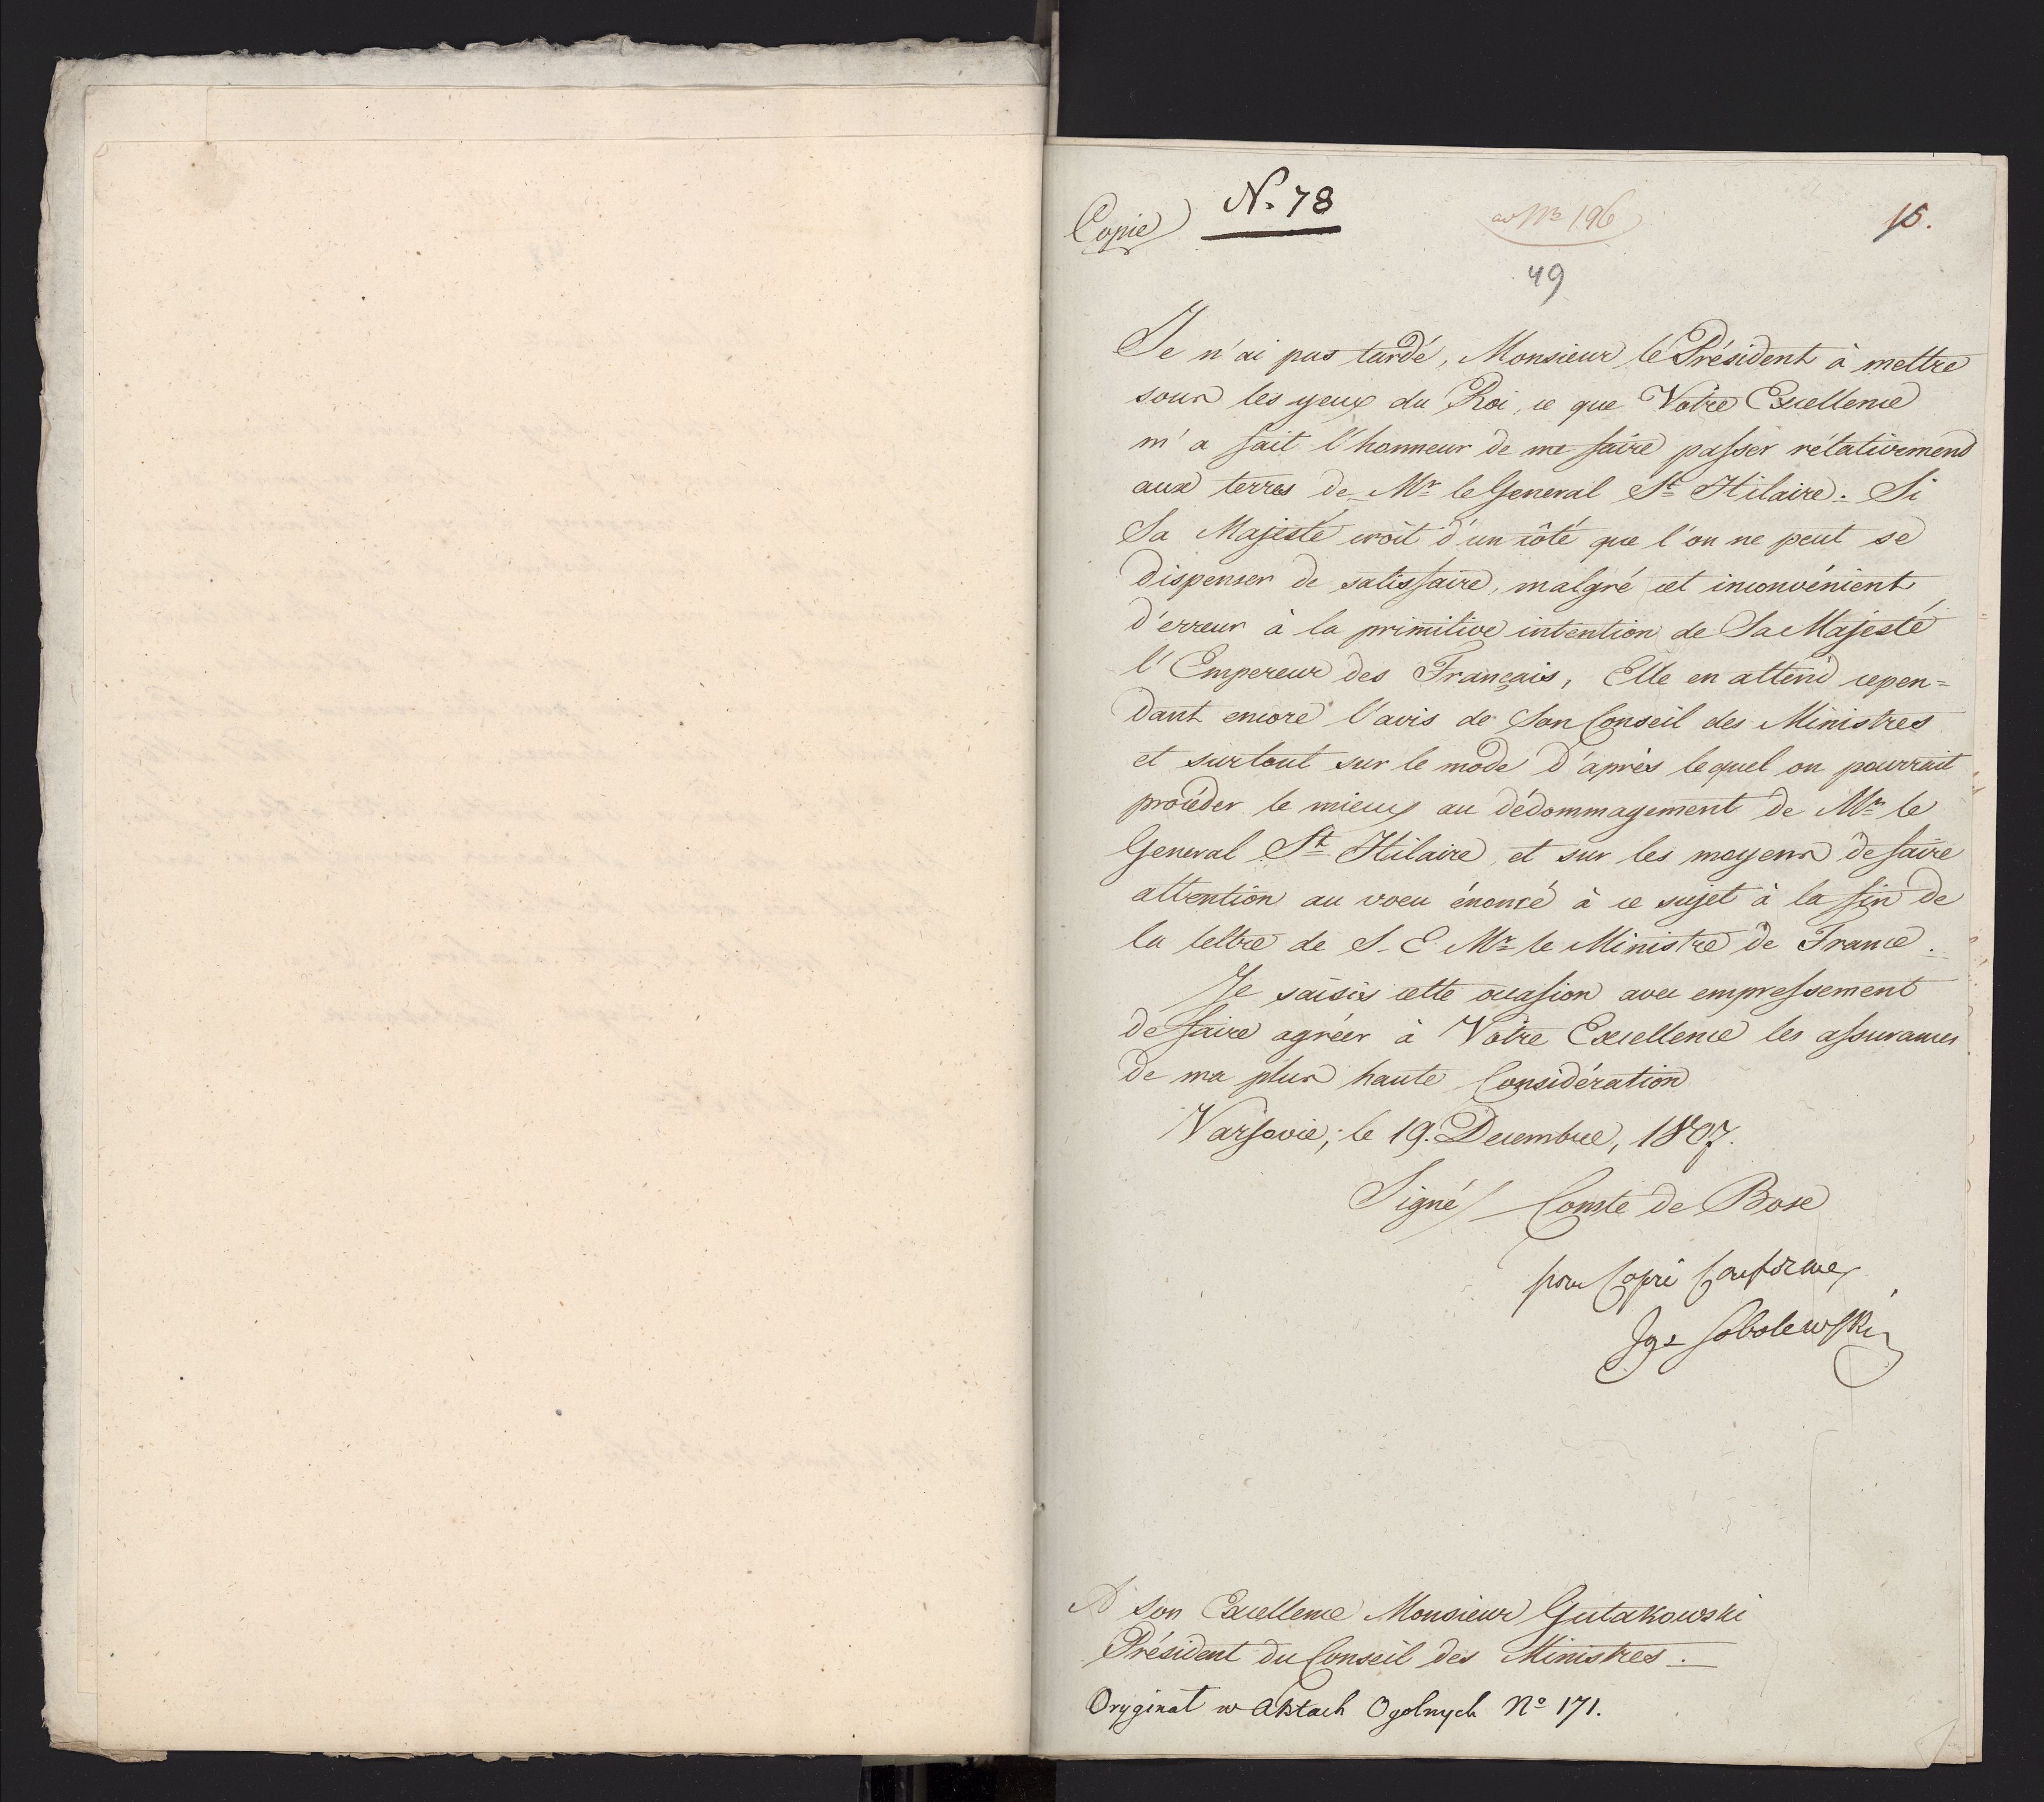 Copie
N. 78
ad Nr 196
15.
49
Je n'ai pas tardé, Monsieur le Président à mettre
sous les yeux du Roi, ce que Votre Excellence
m'a fait l'honneur de me faire passer rélativement
aux terres de Mr le General St Hilaire. Si
Sa Majesté croit d'un côté que l'on ne peut se
dispenser de satisfaire, malgré cet inconvénient
d'erreur à la primitive intention de Sa Majesté
l'Empereur des Français, Elle en attend cepen=
dant encore l'avis de Son Conseil des Ministres
et surtout sur le mode d'après lequel on pourrait
procéder le mieux au dédommagement de Mr le
General St Hilaire, et sur les moyens de faire
attention au voeu énoncé à ce sujet à la fin de
la lettre de S. E. Mr le Ministre de France.
Je saisis cette occasion avec empressement
de faire agréer à Votre Excellence les assurances
de ma plus haute Considération
Varsovie, le 19. Decembre, 1807.
Signé/ Comte de Bose
pour Copie Conforme,
Ign Sobolewski
A Son Excellence Monsieur Gutakowski
Président du Conseil des Ministres.
Oryginał w Aktach Ogolnych No 171.